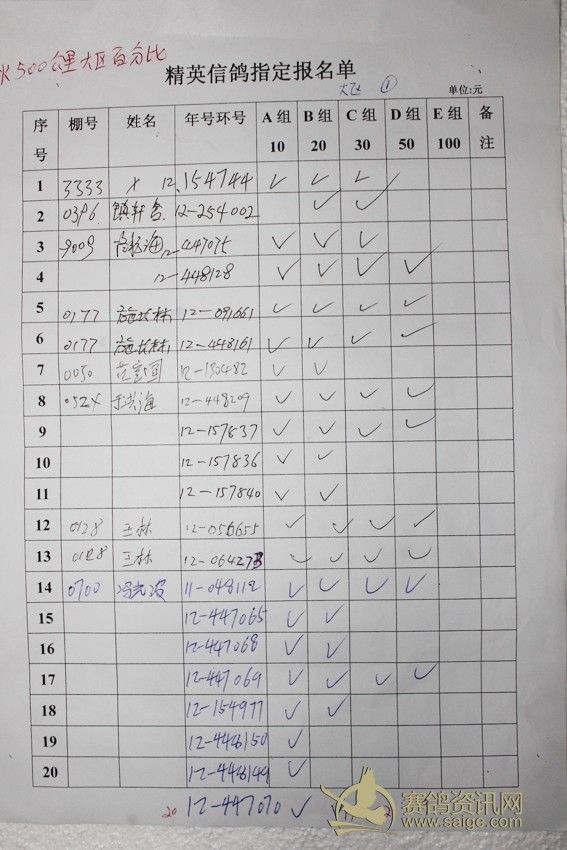 500公里大区百分比
精英信鸽指定报名单
大区 ① 单位:元
序号 棚号 姓名 年号环号 A组10 B组20 C组30 D组50 E组100 备注
1 3333 12.154744 ✓ ✓ ✓ ✓
2 0396 12-254002 ✓ ✓
3 9009 12-447075 ✓ ✓ ✓
4 12-448128 ✓ ✓ ✓ ✓
5 0177 12-091661 ✓ ✓ ✓ ✓
6 0177 12-448161 ✓ ✓ ✓ ✓
7 0050 12-130482 ✓ ✓
8 于洪海 12-448209 ✓ ✓ ✓ ✓
9 12-157837 ✓ ✓ ✓ ✓
10 12-157836 ✓ ✓
11 12-157840 ✓ ✓
12 0128 王林 12-056655 ✓ ✓ ✓ ✓
13 0128 王林 12-064273 ✓ ✓ ✓ ✓
14 0700 11-048112 ✓ ✓ ✓ ✓
15 12-447065 ✓ ✓
16 12-447068 ✓ ✓
17 12-447069 ✓ ✓ ✓ ✓
18 12-154977 ✓ ✓
19 12-448150 ✓
20 12-448149 ✓
20 12-447070 ✓
赛鸽资讯网
www.saige.com